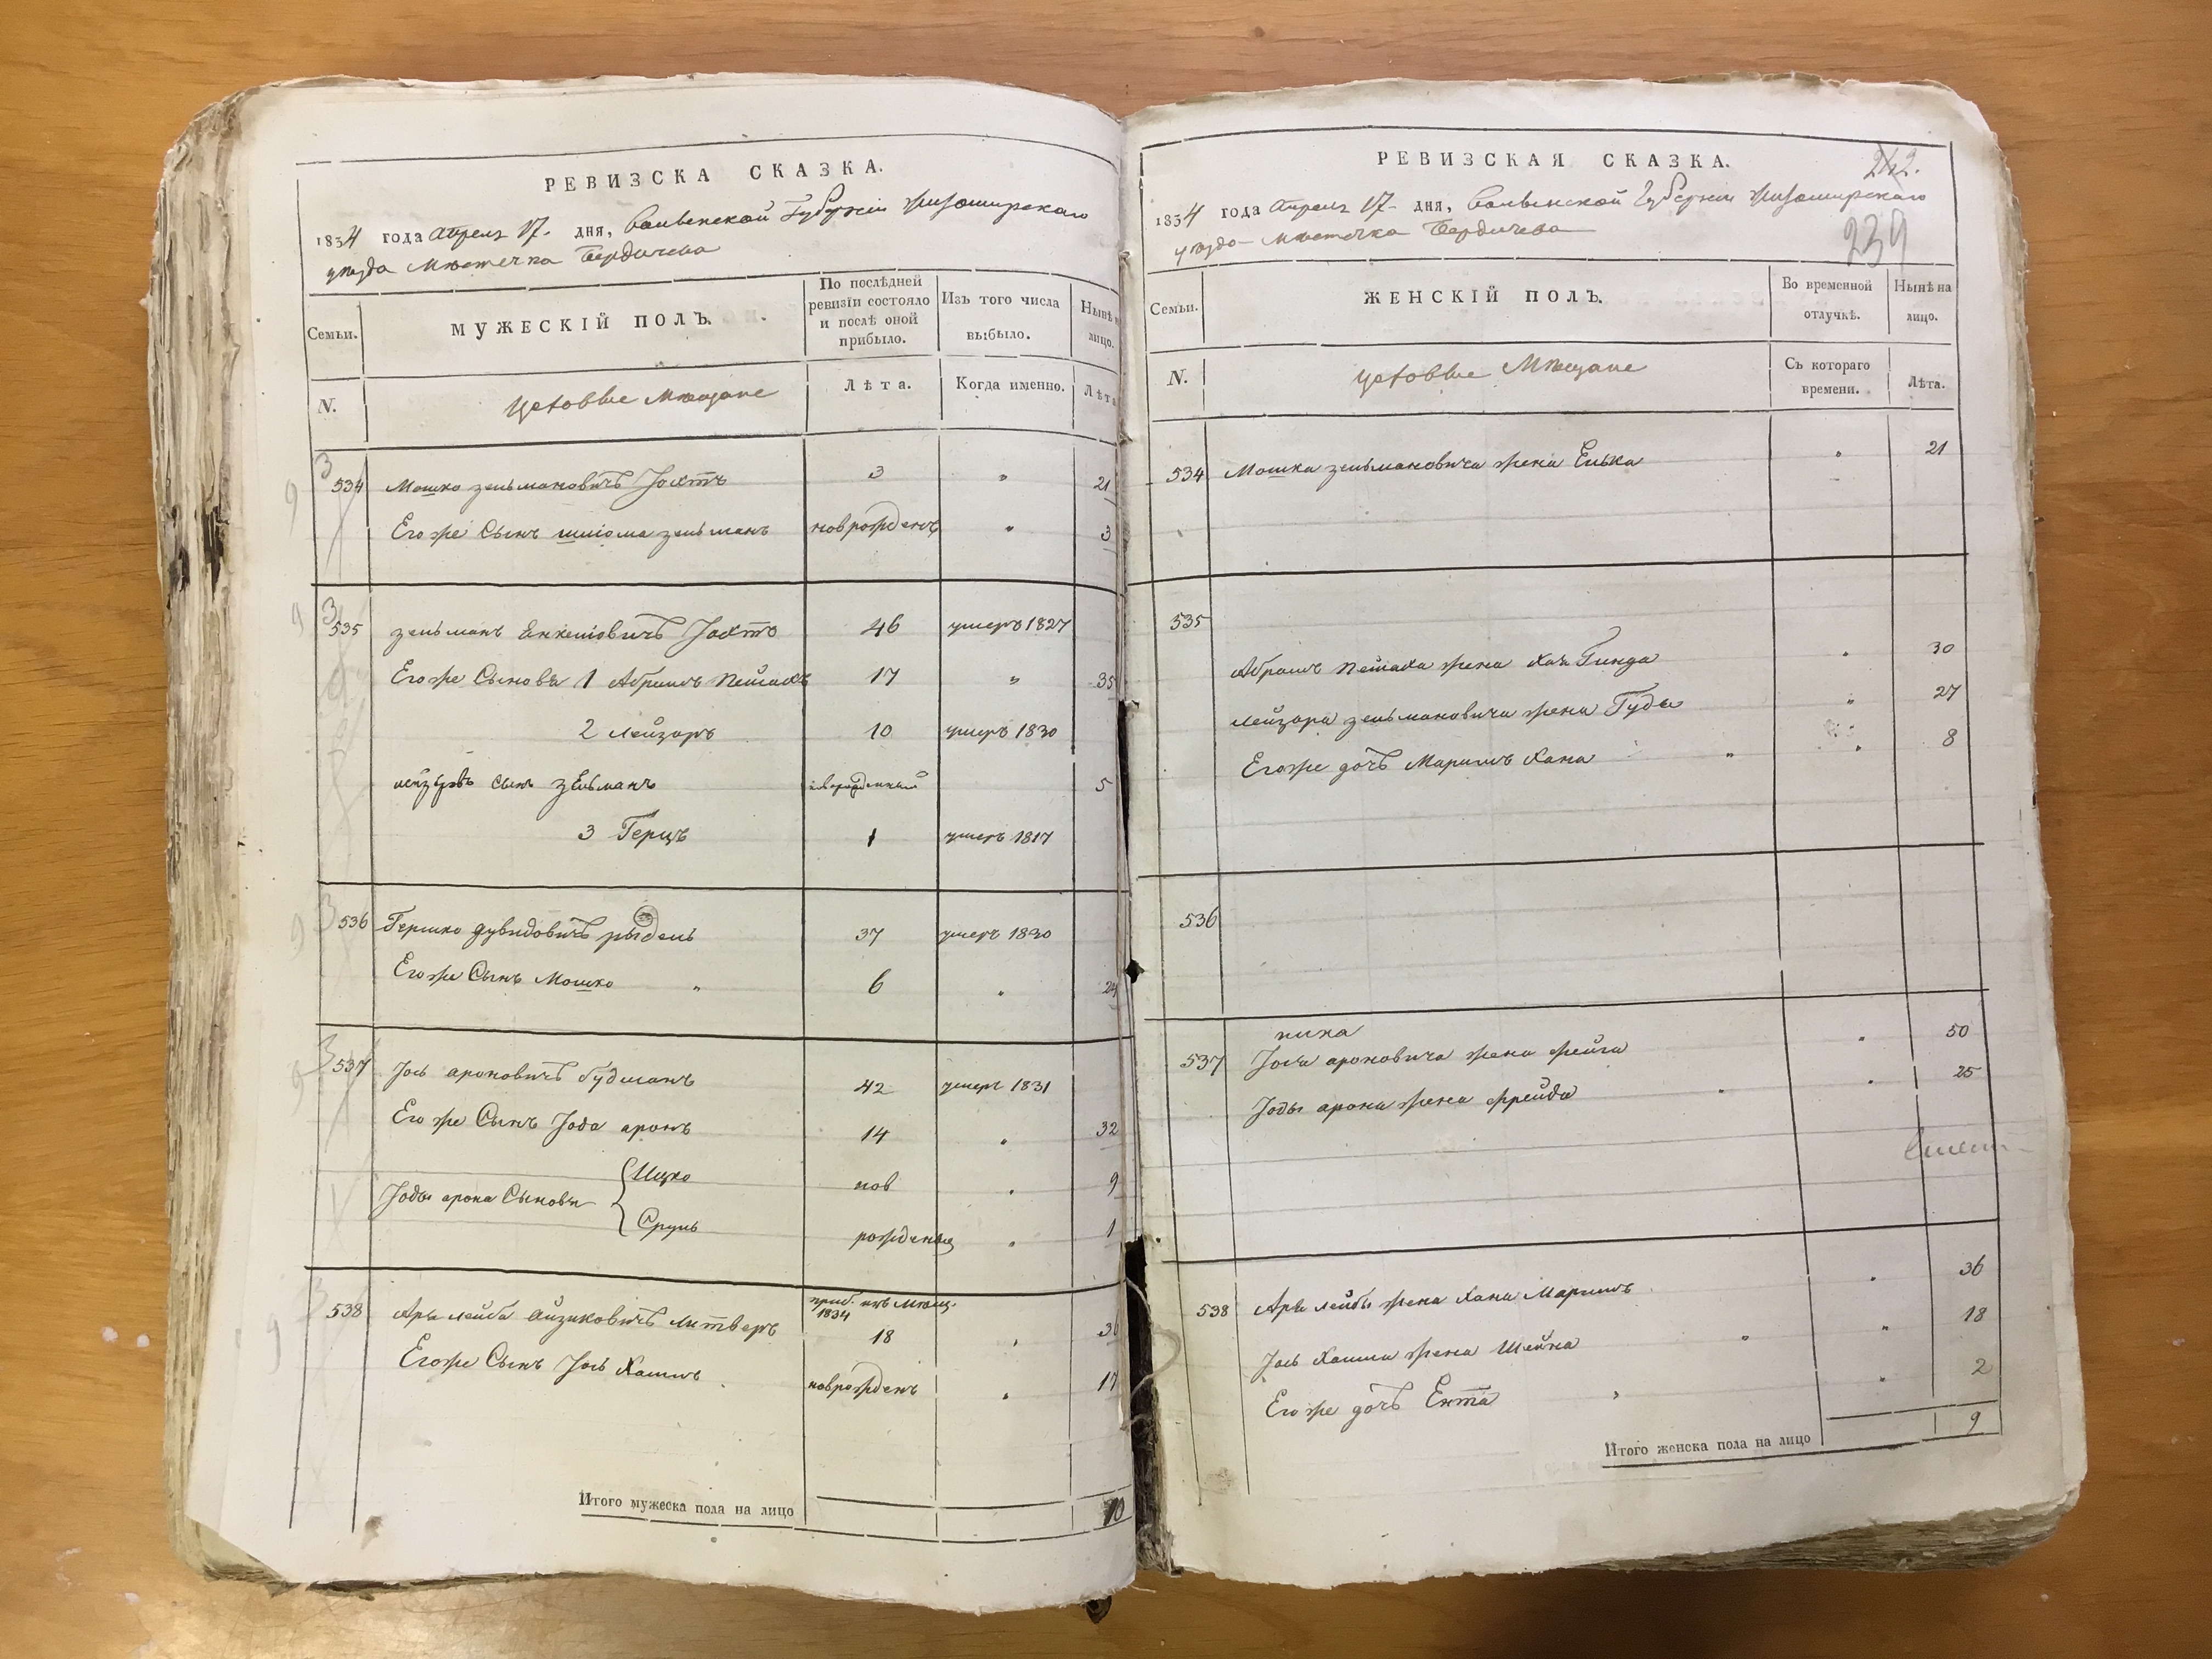 РЕВИЗСКА СКАЗКА.
1834 года Апреля 17. дня, Волынской Губернии Житомирского
уезда Местечка Бердичева
Семьи.
МУЖЕСКІЙ ПОЛЪ.
По послѣдней ревизіи состояло и послѣ оной прибыло.
Изъ того числа выбыло.
Нынѣ на лицо.
N.
Цеховые Мѣщане
Лѣта.
Когда именно.
Лѣта
534 Мошко Зельмановичъ 3 " 21
Его же Сынъ Шліома Зельман новрожденъ " 3
535 Зельманъ 46 умеръ 1827
Его же Сыновья 1 Абрамъ Пейсахъ 17 " 35
2 Лейзоръ 10 умеръ 1830
сынъ Зельманъ новорожденный 5
3 Герцъ 1 умеръ 1817
536 Гершко Дувидовичъ 37 умеръ 1830
Его же Сынъ Мошко " 6 " 24
537 Іось Ароновичъ Гудманъ 42 умеръ 1831
Его же Сынъ Іода Аронъ 14 " 32
Іоды Арона Сыновя Ицко нов " 9
Сруль рожденны " 1
538 Арія Лейба Айзиковичъ Литваръ 1834 18 " 36
Его же Сынъ Іось Хаимъ новрожденъ " 17
Итого мужеска пола на лицо 10
РЕВИЗСКАЯ СКАЗКА.
242.
1834 года Апреля 17. дня, Волынской Губернии Житомирского
уезда Местечка Бердичева
239
Семьи.
ЖЕНСКІЙ ПОЛЪ.
Во временной отлучкѣ.
Нынѣ на лицо.
N.
Цеховые Мѣщане
Съ котораго времени.
Лѣта.
534 Мошка Зельмановича жена Елька " 21
535
Абрамъ Пейсаха жена Хая Гинда " 30
Лейзора Зельмановича жена Гуда " 27
Его же дочъ Маріямъ Хана " " 8
536
537 Іося Ароновича жена Фейга " 50
Іоды Арона жена Фрейда " " 25
538 Арія Лейбы жена Хана Маріямъ " 36
Іось Хаима жена Шейна " " 18
Его же дочъ Ента " " 2
Итого женска пола на лицо 9